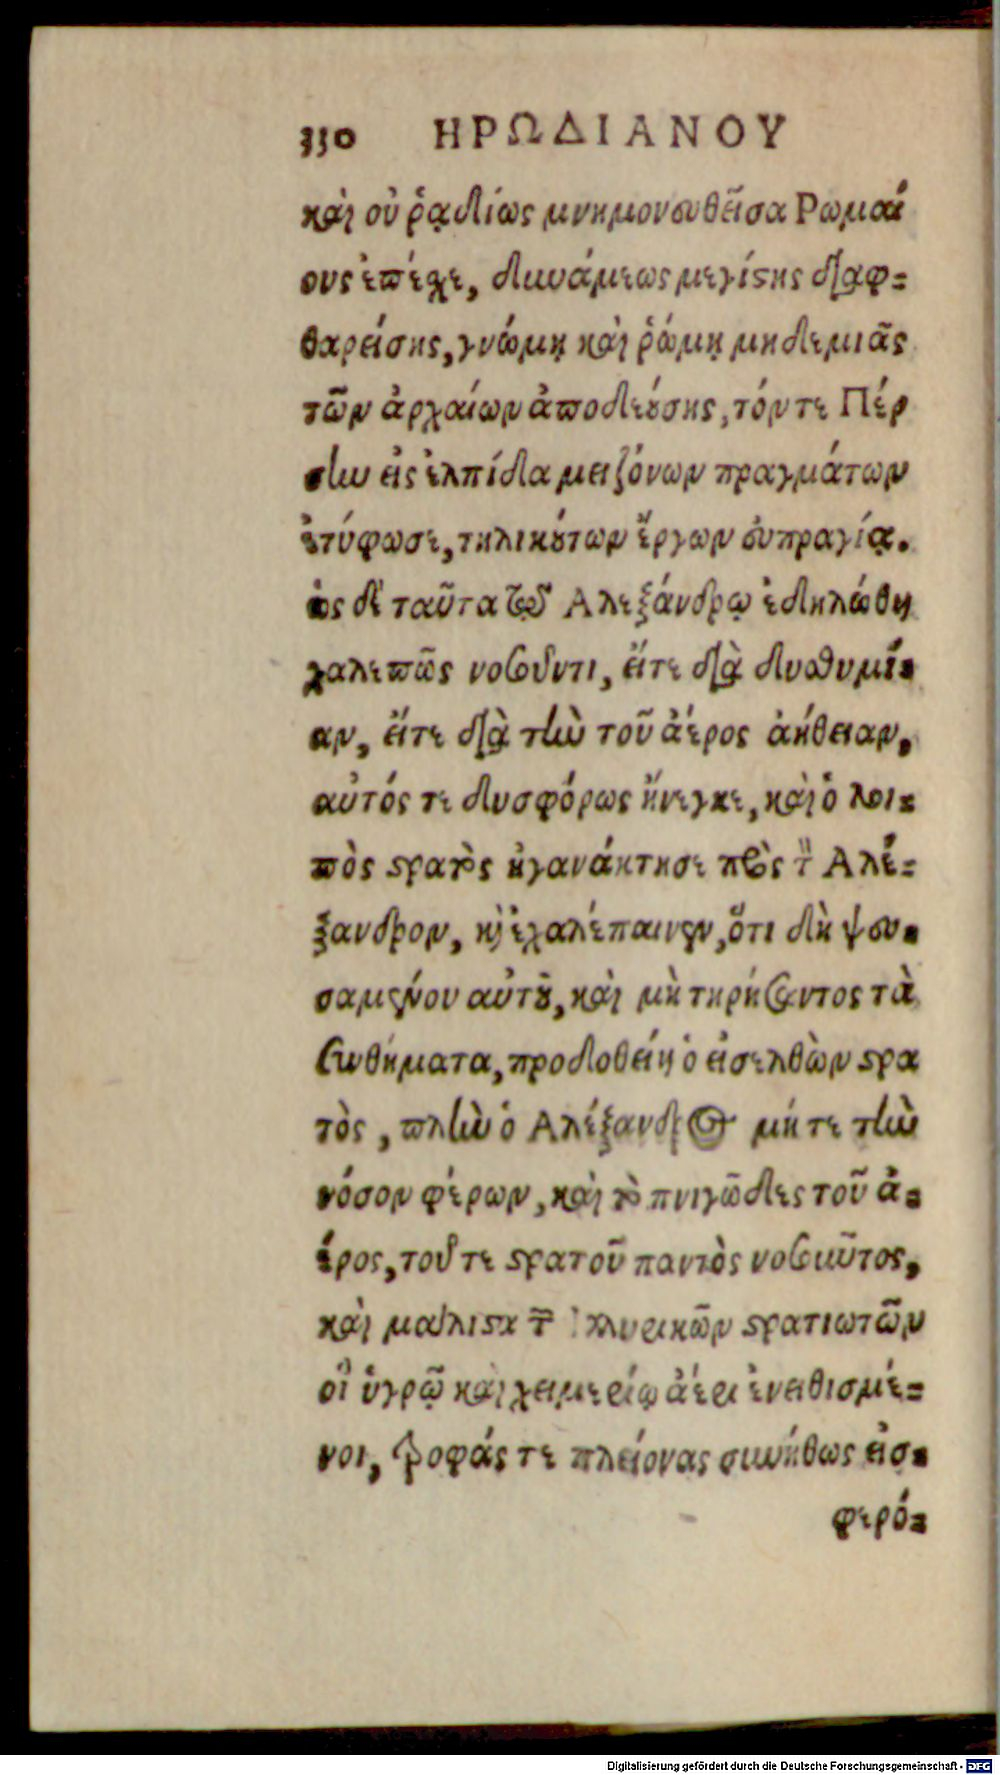 330 ΗΡΩΔΙΑΝΟΥ
καὶ οὐ ῥᾳδίως μνημονευθεῖσα Ρωμαί
ους ἐπέχε, δυνάμεως μεγίστης διαφ-
θαρείσης, γνώμῃ καὶ ῥώμῃ μηδεμιᾶς
τῶν ἀρχαίων ἀποδεούσης, τόν τε Πέρ
σην εἰς ἐλπίδα μειζόνων πραγμάτων
ἐτύφωσε, τηλικούτων ἔργων εὐπραγίᾳ.
ὡς δὲ ταῦτα τῷ Αλεξάνδρῳ ἐδηλώθη
χαλεπῶς νοσοῦντι, εἴτε διὰ δυσθυμί-
αν, εἴτε διὰ τὴν τοῦ ἀέρος ἀήθειαν,
αὐτός τε δυσφόρως ἤνεγκε, καὶ ὁ λοι-
πὸς στρατὸς ἠγανάκτησε πρὸς τὸν Αλέ-
ξανδρον, καὶ ἐχαλέπαινεν, ὅτι δὴ ψευ-
σαμένου αὐτοῦ, καὶ μὴ τηρήσαντος τὰ
συνθήματα, προδοθείη ὁ εἰσελθὼν στρα
τὸς, πλὴν ὁ Αλέξανδρος μήτε τὴν
νόσον φέρων, καὶ τὸ πνιγῶδες τοῦ ἀ-
έρος, τοῦ τε στρατοῦ παντὸς νοσοῦντος,
καὶ μάλιστα τῶν Ἰλλυρικῶν στρατιωτῶν
οἳ ὑγρῷ καὶ χειμερίῳ ἀέρι ἐνειθισμέ-
νοι, τροφάς τε πλείονας συνήθως εἰσ-
φερό-
Digitalisierung gefördert durch die Deutsche Forschungsgemeinschaft - DFG